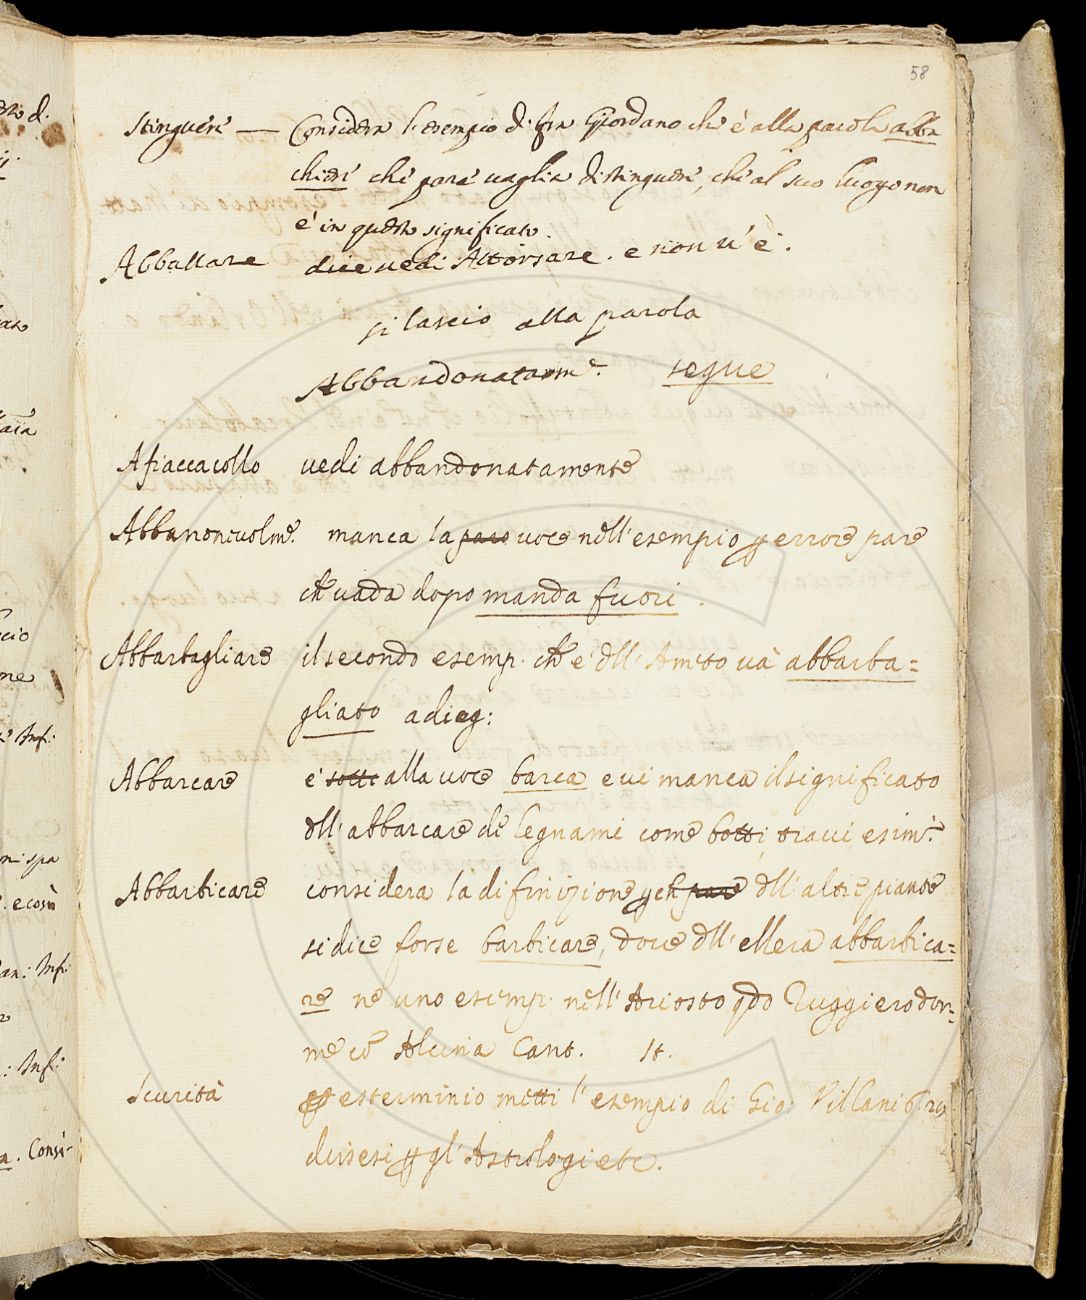 58
Stinguere — Considera l'esempio di fra Giordano che è alla parola abba
chiere che pare uaglia distinguere, che al suo luogo non
é in questo significato.
Abballare dice uedi Attorsare. e non u'è.
si lascio alla parola
Abbandonatam.e segue
A fiaccacollo uedi abbandonatamente
manca la pare uoce nell'esempio p errore pare
ch uada dopo manda fuori.
Abbarbagliare il secondo esemp. ch e' dll' Ameto uà abbarba=
gliato adieg:
Abbarcare e' sotto alla uoce barca e ui manca il significato
dll' abbarcare de legnami come botti
Abbarbicare considera la difinizione p ch pare dll' altre piante
si dice forse barbicare, doue dll' ellera abbarbica=
re ne uno esemp. nell' Ariosto qdo Ruggiero dor=
me co Alcina Cant.
Scurità p esterminio metti l'esempio di Gio: Villani
p gl' Astrologi etc.